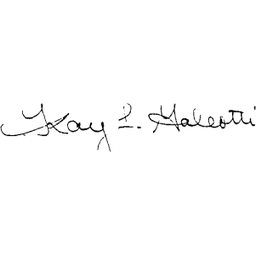 Kay L. Galeotti